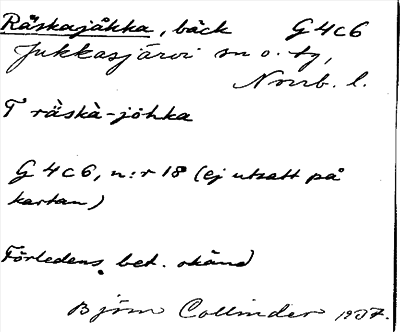 Räskajåkka, bäck G4c6
Jukkasjärvi sn o. tg,
Norrb. l.
T räskà-jöhka
G 4 c 6, n:r 18 (ej utsatt på
kartan)
Förledens bet. okänd
Björn Collinder 1937.